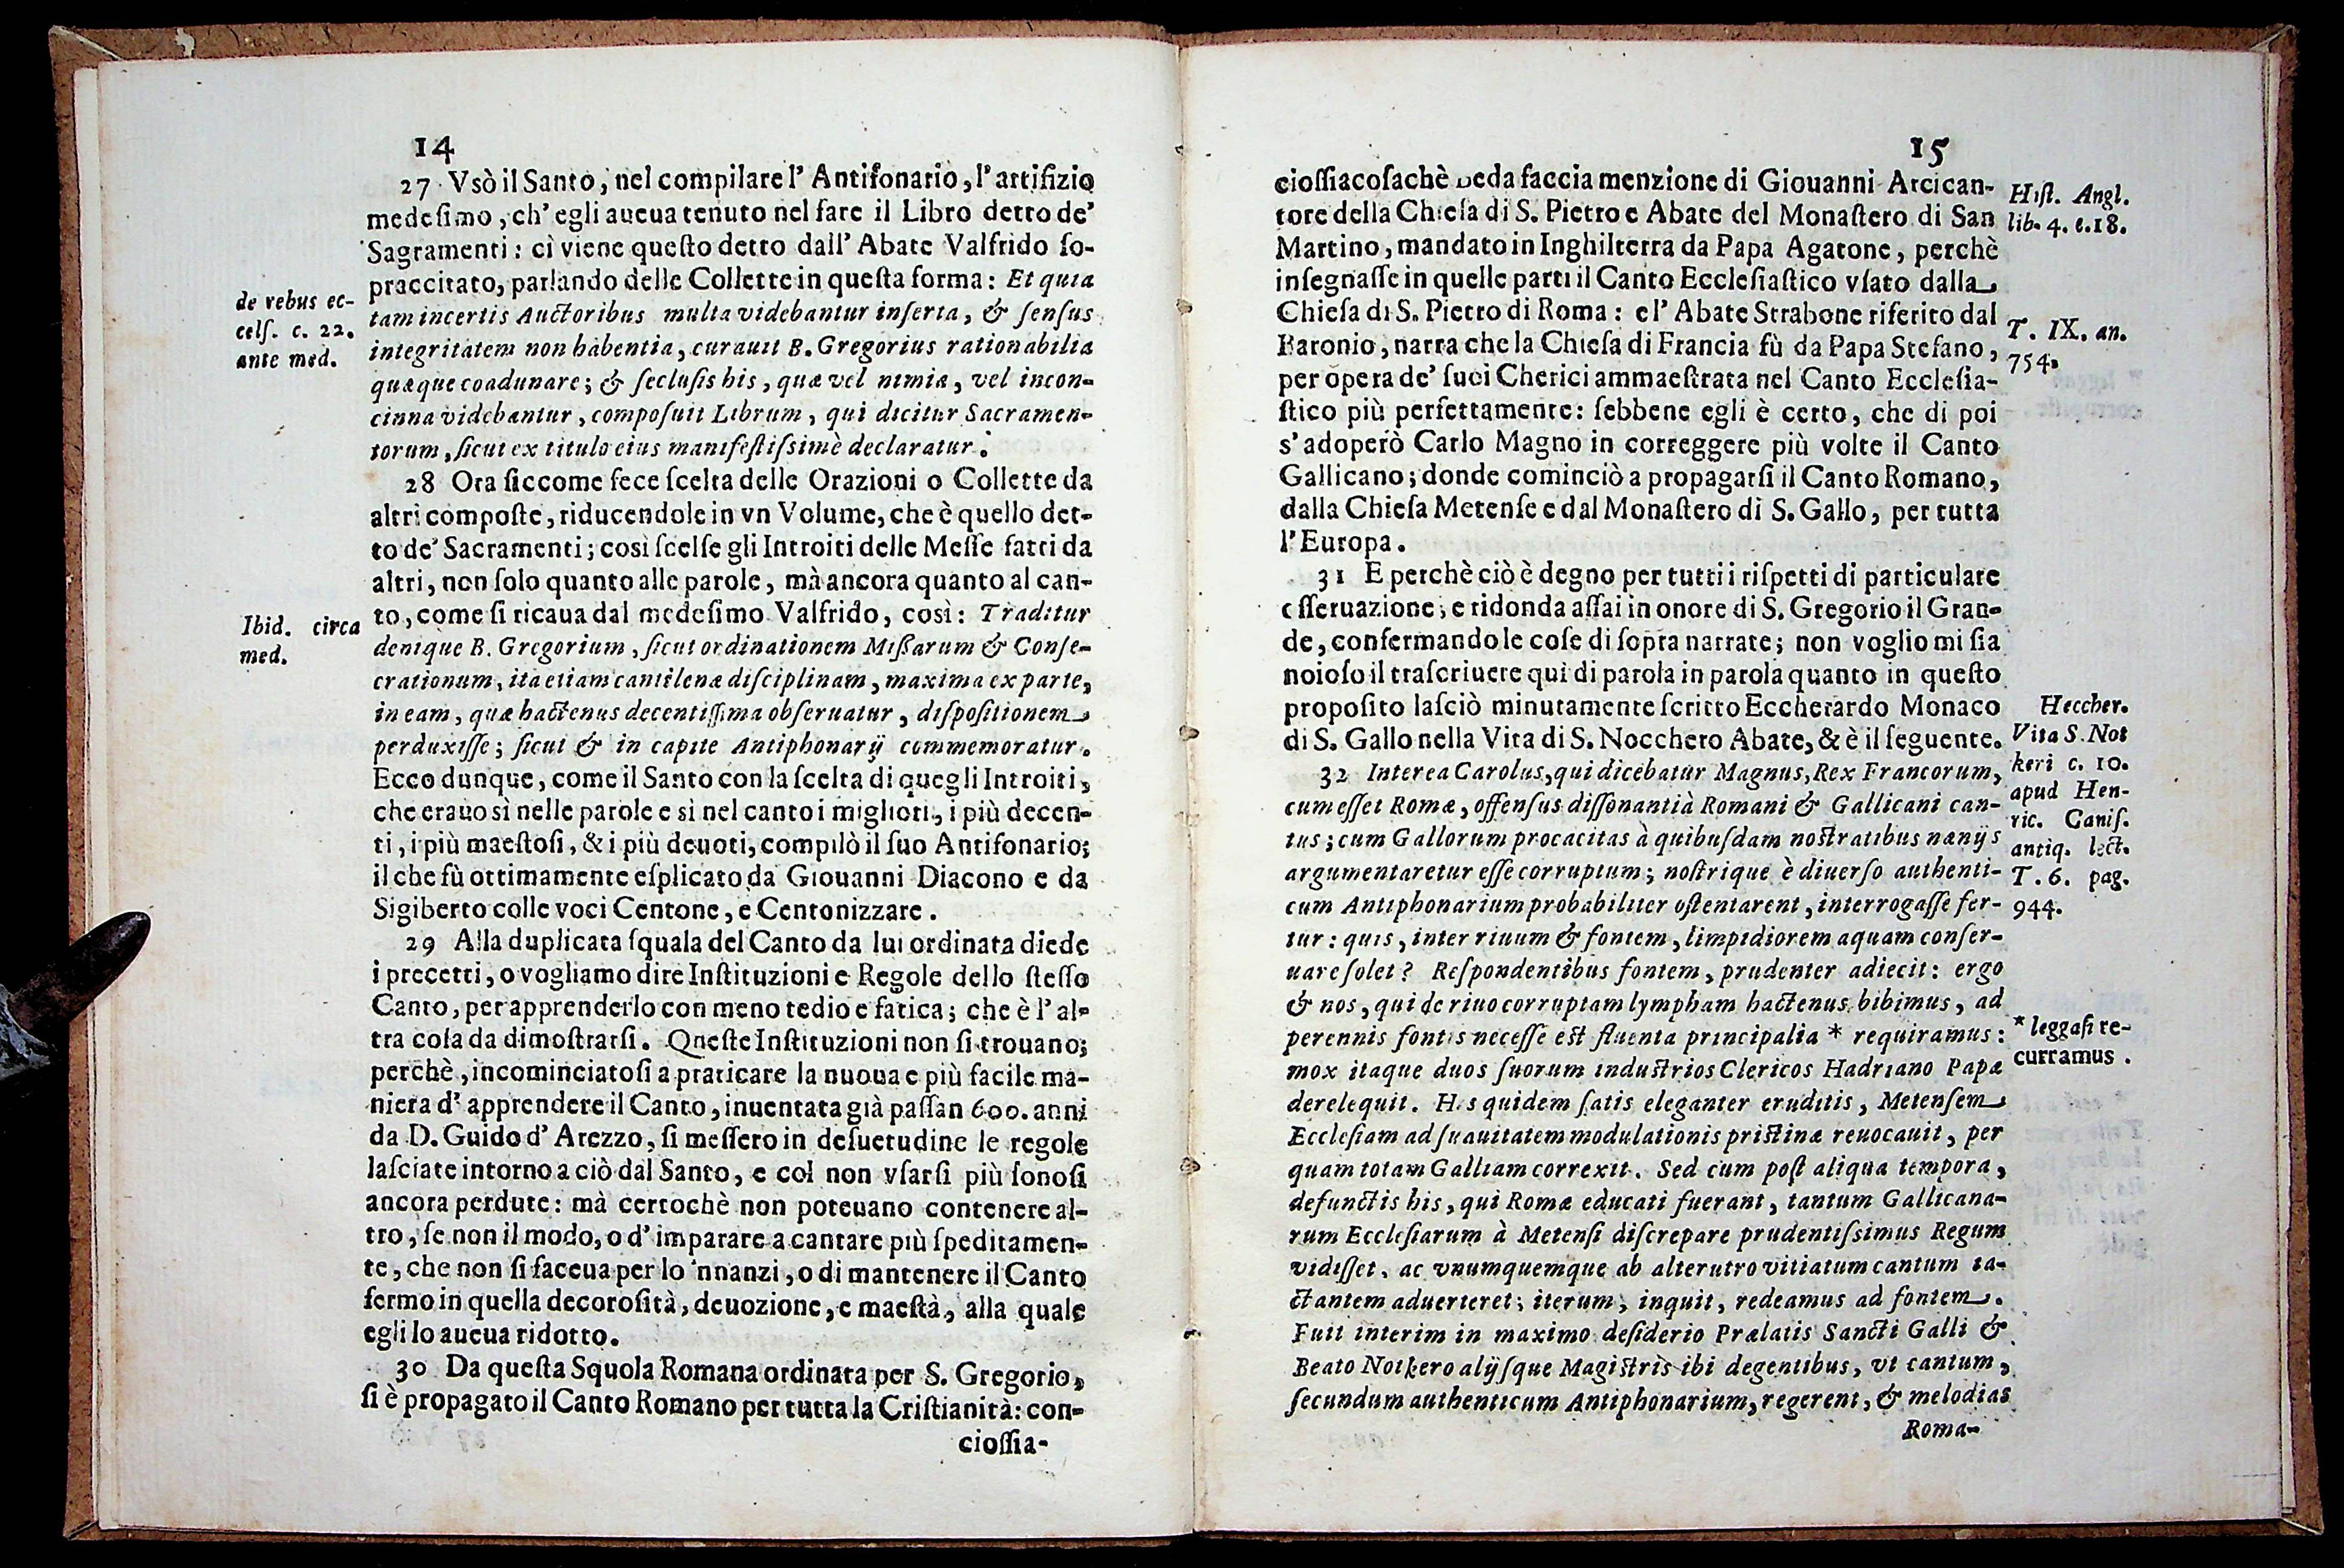 14
27 Vsò il Santo, nel compilare l' Antifonario, l' artifizio
medeſimo, ch' egli aueua tenuto nel fare il Libro detto de'
Sagramenti: ci viene queſto detto dall' Abate Valfrido ſo-
praccitato, parlando delle Collette in queſta forma: Et quia
tam incertis Auctoribus multa videbantur inſerta, & ſenſus
integritatem non habentia, curauit B. Gregorius rationabilia
quæque coadunare; & ſecluſis his, quæ vel nimia, vel incon-
cinna videbantur, compoſuit Librum, qui dicitur Sacramen-
torum, ſicut ex titulo eius manifeſtiſsimè declaratur.
de rebus ec-
celſ. c. 22.
ante med.
28 Ora ſiccome fece ſcelta delle Orazioni o Collette da
altri compoſte, riducendole in vn Volume, che è quello det-
to de' Sacramenti; così ſcelſe gli Introiti delle Meſſe fatti da
altri, non ſolo quanto alle parole, mà ancora quanto al can-
to, come ſi ricaua dal medeſimo Valfrido, così: Traditur
denique B. Gregorium, ſicut ordinationem Mißarum & Conſe-
crationum, ita etiam cantilenæ diſciplinam, maxima ex parte,
in eam, quæ hactenus decentiſſima obſeruatur, diſpoſitionem
perduxiſſe; ſicut & in capite Antiphonarij commemoratur.
Ibid. circa
med.
Ecco dunque, come il Santo con la ſcelta di quegli Introiti,
che erauo sì nelle parole e sì nel canto i migliori, i più decen-
ti, i più maeſtoſi, & i più deuoti, compilò il ſuo Antifonario;
il che fù ottimamente eſplicato da Giouanni Diacono e da
Sigiberto colle voci Centone, e Centonizzare.
29 Alla duplicata ſquala del Canto da lui ordinata diede
i precetti, o vogliamo dire Inſtituzioni e Regole dello ſteſſo
Canto, per apprenderlo con meno tedio e fatica; che è l' al-
tra coſa da dimoſtrarſi. Queſte Inſtituzioni non ſi trouano;
perchè, incominciatoſi a praticare la nuoua e più facile ma-
niera d' apprendere il Canto, inuentata già paſſan 600. anni
da D. Guido d' Arezzo, ſi meſſero in deſuetudine le regole
laſciate intorno a ciò dal Santo, e col non vſarſi più ſonoſi
ancora perdute: mà certochè non poteuano contenere al-
tro, ſe non il modo, o d' imparare a cantare più ſpeditamen-
te, che non ſi faceua per lo 'nnanzi, o di mantenere il Canto
fermo in quella decoroſità, deuozione, e maeſtà, alla quale
egli lo aueua ridotto.
30 Da queſta Squola Romana ordinata per S. Gregorio,
ſi è propagato il Canto Romano per tutta la Criſtianità: con-
cioſſia-
15
cioſſiacoſachè Beda faccia menzione di Giouanni Arcican-
tore della Chieſa di S. Pietro e Abate del Monaſtero di San
Martino, mandato in Inghilterra da Papa Agatone, perchè
inſegnaſſe in quelle parti il Canto Eccleſiaſtico vſato dalla
Chieſa di S. Pietro di Roma: e l' Abate Strabone riferito dal
Baronio, narra che la Chieſa di Francia fù da Papa Stefano,
per opera de' ſuoi Cherici ammaeſtrata nel Canto Eccleſia-
ſtico più perfettamente: ſebbene egli è certo, che di poi
s' adoperò Carlo Magno in correggere più volte il Canto
Gallicano; donde cominciò a propagarſi il Canto Romano,
dalla Chieſa Metenſe e dal Monaſtero di S. Gallo, per tutta
l' Europa.
Hiſt. Angl.
lib. 4. c. 18.
T. IX. an.
754.
31 E perchè ciò è degno per tutti i riſpetti di particulare
oſſeruazione, e ridonda aſſai in onore di S. Gregorio il Gran-
de, confermando le coſe di ſopra narrate; non voglio mi ſia
noioſo il traſcriuere qui di parola in parola quanto in queſto
propoſito laſciò minutamente ſcritto Eccherardo Monaco
di S. Gallo nella Vita di S. Nocchero Abate, & è il ſeguente.
32 Interea Carolus, qui dicebatur Magnus, Rex Francorum,
cum eſſet Romæ, offenſus diſſonantià Romani & Gallicani can-
tus; cum Gallorum procacitas à quibuſdam noſtratibus nænijs
argumentaretur eſſe corruptum; noſtrique è diuerſo authenti-
cum Antiphonarium probabiliter oſtentarent, interrogaſſe fer-
tur: quis, inter riuum & fontem, limpidiorem aquam conſer-
uare ſolet? Reſpondentibus fontem, prudenter adiecit: ergo
& nos, qui de riuo corruptam lympham hactenus bibimus, ad
perennis fontis neceſſe eſt fluenta principalia * requiramus:
mox itaque duos ſuorum induſtrios Clericos Hadriano Papæ
derelequit. His quidem ſatis eleganter eruditis, Metenſem
Eccleſiam ad ſuauitatem modulationis priſtinæ reuocauit, per
quam totam Galliam correxit. Sed cum poſt aliqua tempora,
defunctis his, qui Romæ educati fuerant, tantum Gallicana-
rum Eccleſiarum à Metenſi diſcrepare prudentiſsimus Regum
vidiſſet, ac vnumquemque ab alterutro vitiatum cantum ia-
ctantem aduerteret; iterum, inquit, redeamus ad fontem.
Fuit interim in maximo deſiderio Prælatis Sancti Galli &
Beato Notkero alijſque Magiſtris ibi degentibus, vt cantum,
ſecundum authenticum Antiphonarium, regerent, & melodias
Roma-
Heccher.
Vita S. Not
keri c. 10.
apud Hen-
ric. Caniſ.
antiq. lect.
T. 6. pag.
944.
* leggaſi re-
curramus.